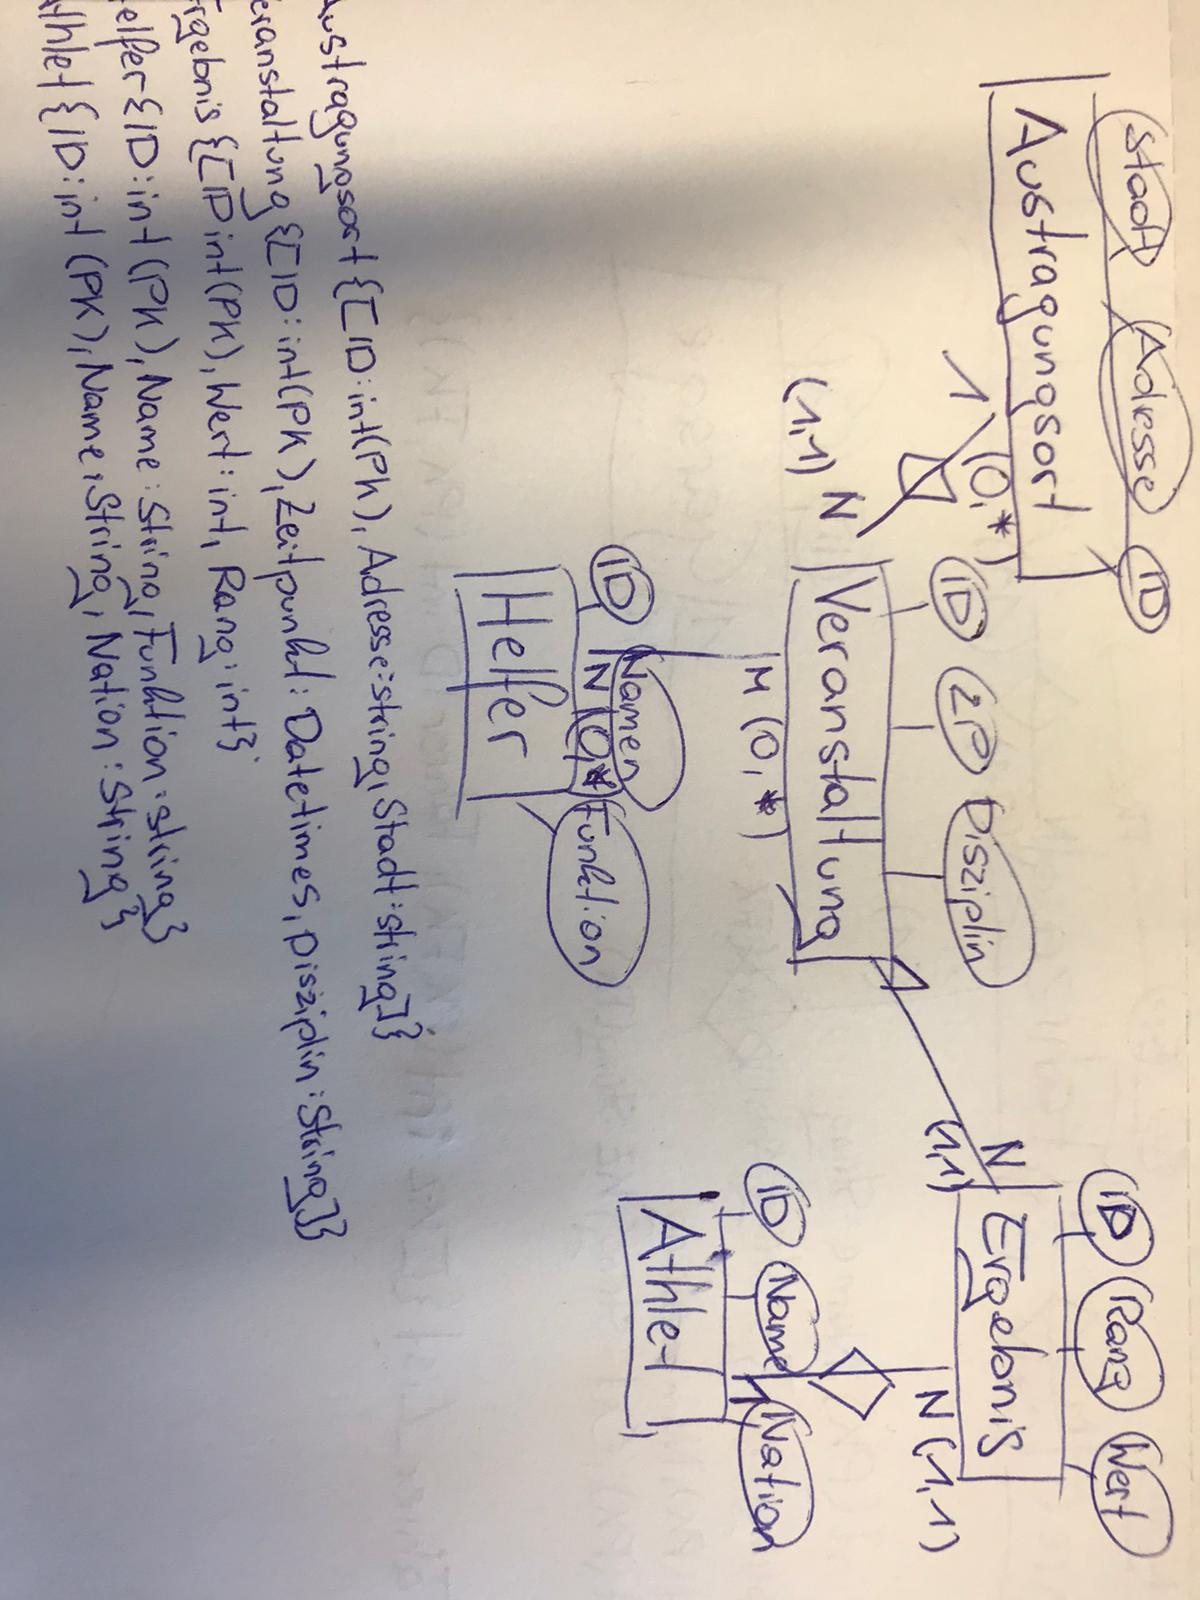 Stadt Adresse ID
Austragungsort
1 (0,*)
(1,1) N
ID ZP Disziplin
Veranstaltung
M (0,*)
ID Namen Funktion
N (0,*)
Helfer
ID Rang Wert
N
(1,1)
Ergebnis
N (1,1)
1
ID Name Nation
Athlet
Austragungsort {[ID:int(PK), Adresse:string, Stadt:string]}
eranstaltung {[ID:int(PK), Zeitpunkt: Datetimes, Disziplin:String]}
rgebnis {[ID int(PK), Wert:int, Rang:int}
elfer {ID:int(PK), Name:String, Funktion:string}
Athlet {ID:int (PK), Name:String, Nation:String}